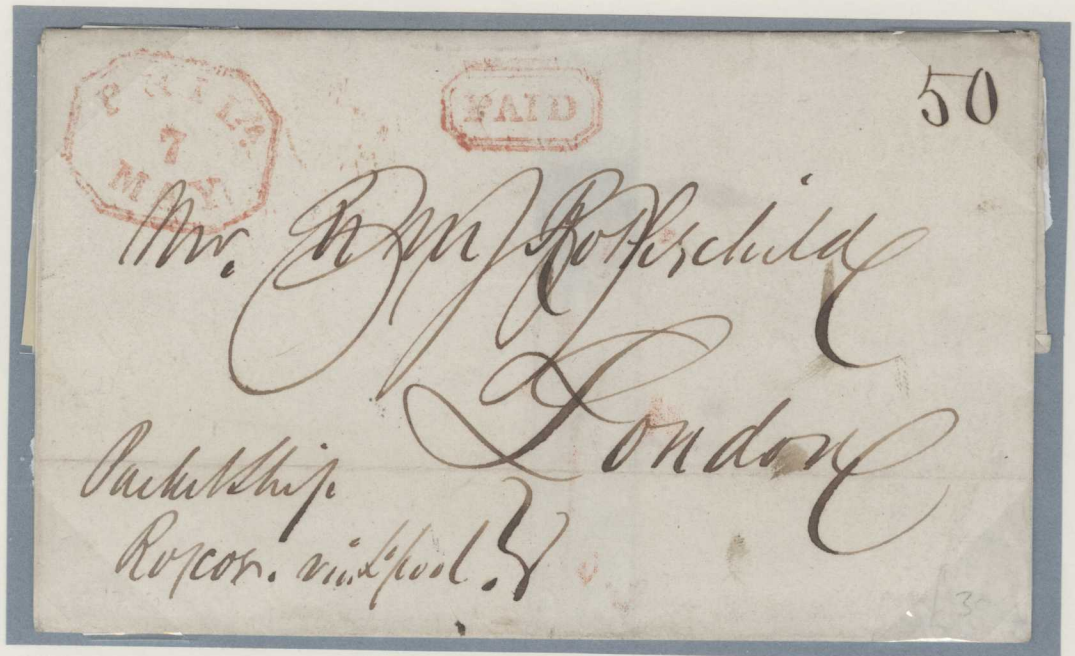 PHILA
7
MAY
PAID
50
Mr. N M Rothschild
London
Packet Ship
Roscoe. via L'pool.
3